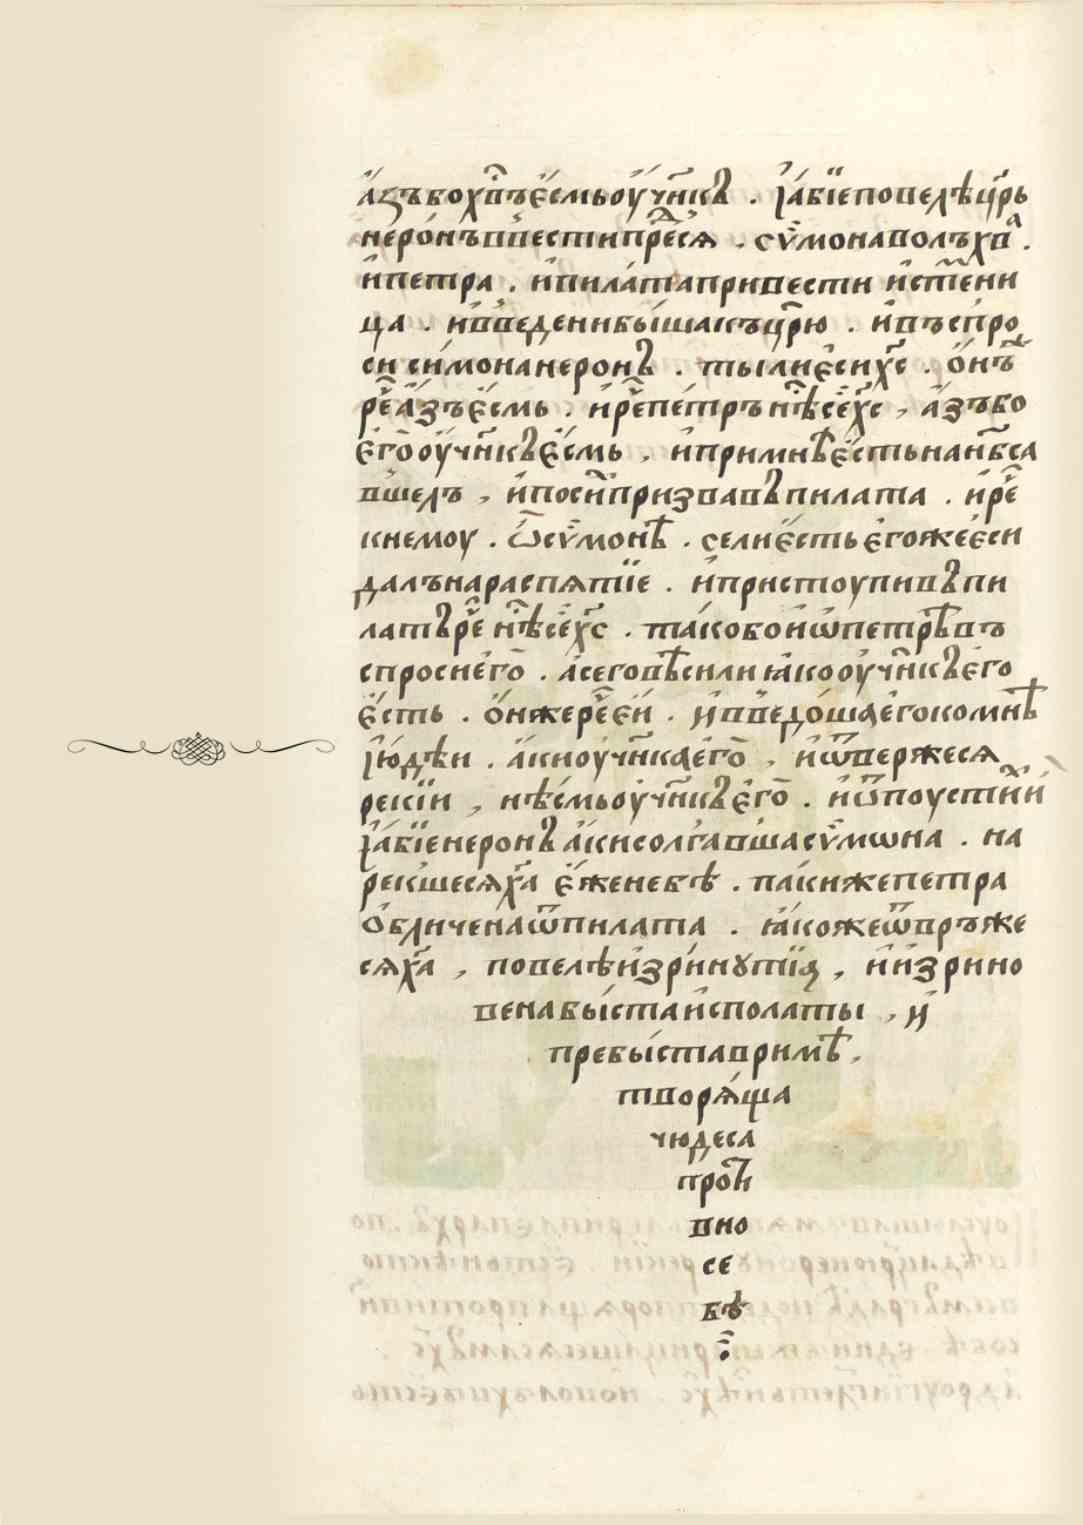 а҆зъбохв҃ъе҆смьоу҆чн҃къ . і҆а҆бїеповелѣцр҃ь
неро́нъпвестипре́дсѧ . сѷмонаволъхва .
и҆петра . и҆пилатапривести и҆стѣни
ца . и҆введенибы́шакъцр҃ю . и҆въспро
сиси́монанеронъ . тылиѐсих҃с . о҆нъ
ре҃а҆зъе҆смь . и҆ре҃пе́трънѣ҃се́х҃с , а҆зъбо
е҆го̀оу҆чн҃къе҆смь , и҆примнѣе҆стьнан҃беса
вшелъ , и҆посн҃призвавъпилата . и҆ре҃
кнемоу . ѿсѷмонѣ . селие҆стье҆гожеѐси
далънараспѧтїе . и҆пристоупивъпи
латъре҃ нѣ҃се́х҃с . та́кобои҆ѡпетрѣвъ
спросие҆го̀ . а҆сеговѣсилиꙗ҆коо́учн҃къе҆го
е҆сть . о҆нжере҃е҆и . и҆введо́шаѐгокомнѣ
і҆юдѣи . а҆киоучн҃кае҆го̀ , и҆ѿвержесѧ
рекїи , нѣсмьо́учн҃къе҆го̀ . и҆ѿпоустих҃и
і҆а҆бїенеронъа҆кисолгавшасѷмѡна . на
рекшесѧх҃а е҆женебѣ . пакижепетра
о҆бличенаѿпилата . ꙗ҆кожеѿвръже
сѧх҃а , повелѣи҆зри́нꙋтїѧ , и҆и҆зрино
венабы́стаи҆сполаты , и҆
пребы́ставримѣ ,
творѧ́ща
чюдеса
проти
вно
се
бѣ